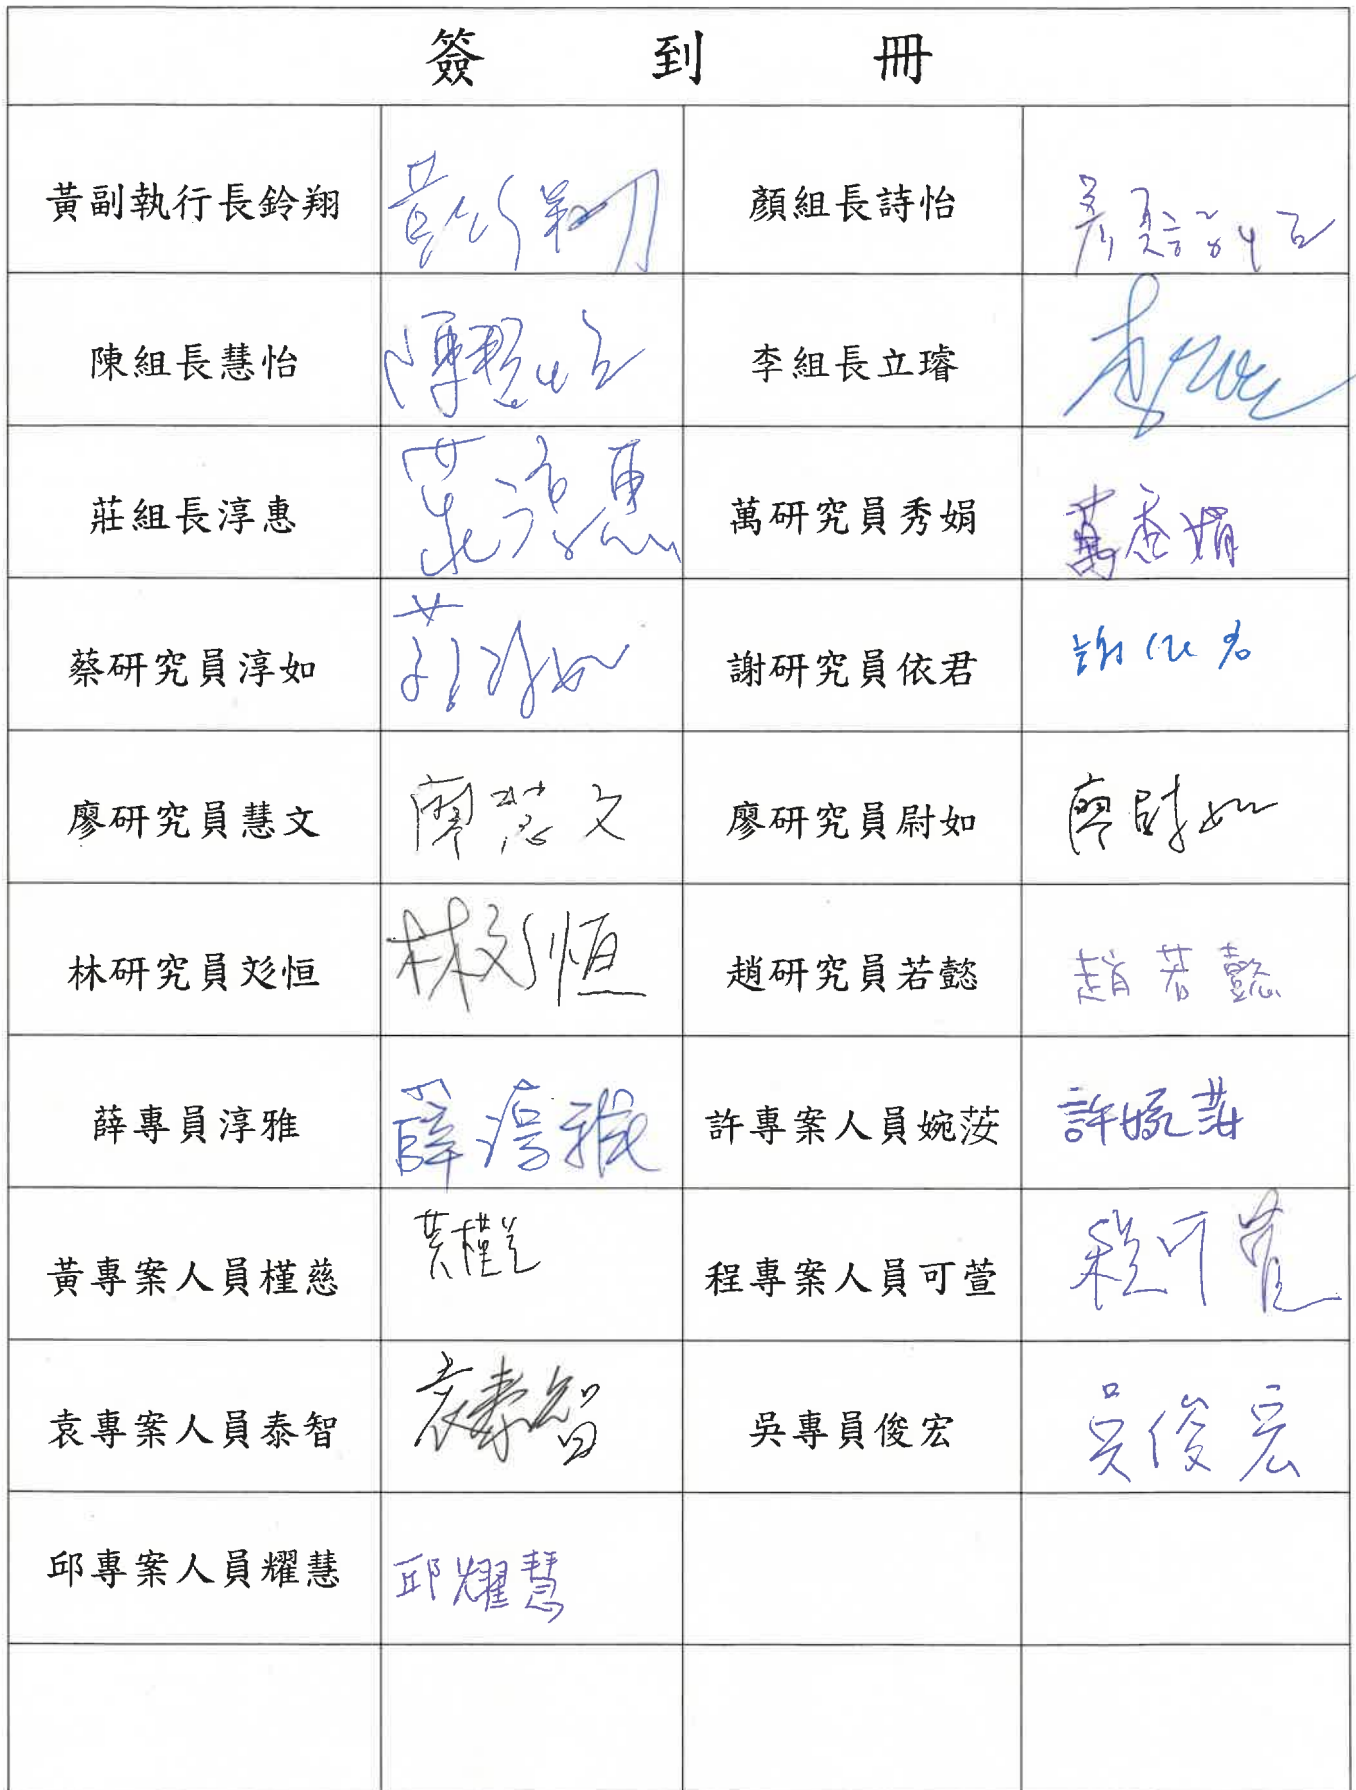 簽到冊
黃副執行長鈴翔 黃鈴翔 顏組長詩怡 顏詩怡
陳組長慧怡 陳慧怡 李組長立璿 李
莊組長淳惠 莊淳惠 萬研究員秀娟 萬秀娟
蔡研究員淳如 蔡淳如 謝研究員依君 謝依君
廖研究員慧文 廖慧文 廖研究員尉如 廖尉如
林研究員彣恒 林彣恒 趙研究員若懿 趙若懿
薛專員淳雅 薛淳雅 許專案人員婉莈 許婉
黃專案人員槿慈 黃槿慈 程專案人員可萱 程可萱
袁專案人員泰智 袁泰智 吳專員俊宏 吳俊宏
邱專案人員耀慧 邱耀慧